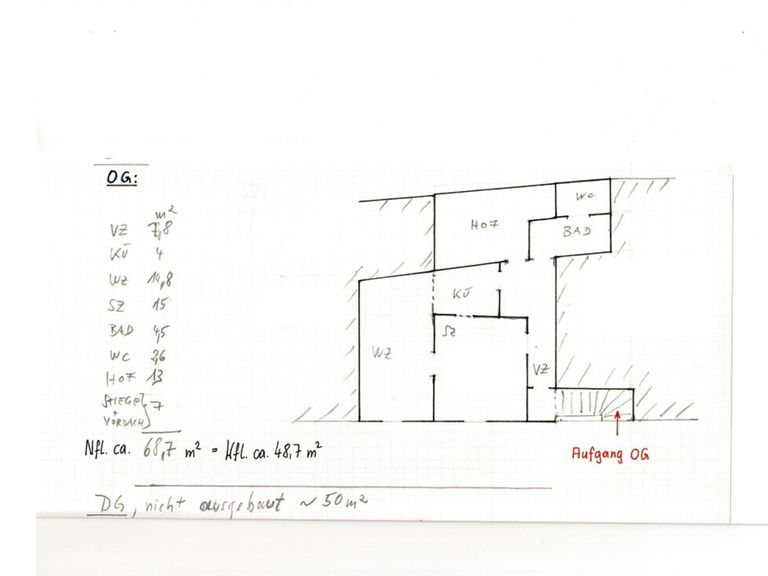 OG:
m²
VZ 7,8
KÜ 4
WZ 14,8
SZ 15
BAD 4,5
WC 2,6
HOF 13
STIEGE + VORDACH } 7
Nfl. ca. 68,7 m² = Wfl. ca. 48,7 m²
DG, nicht ausgebaut ~ 50 m²
WC
HOF
BAD
KÜ
SZ
WZ
VZ
Aufgang OG